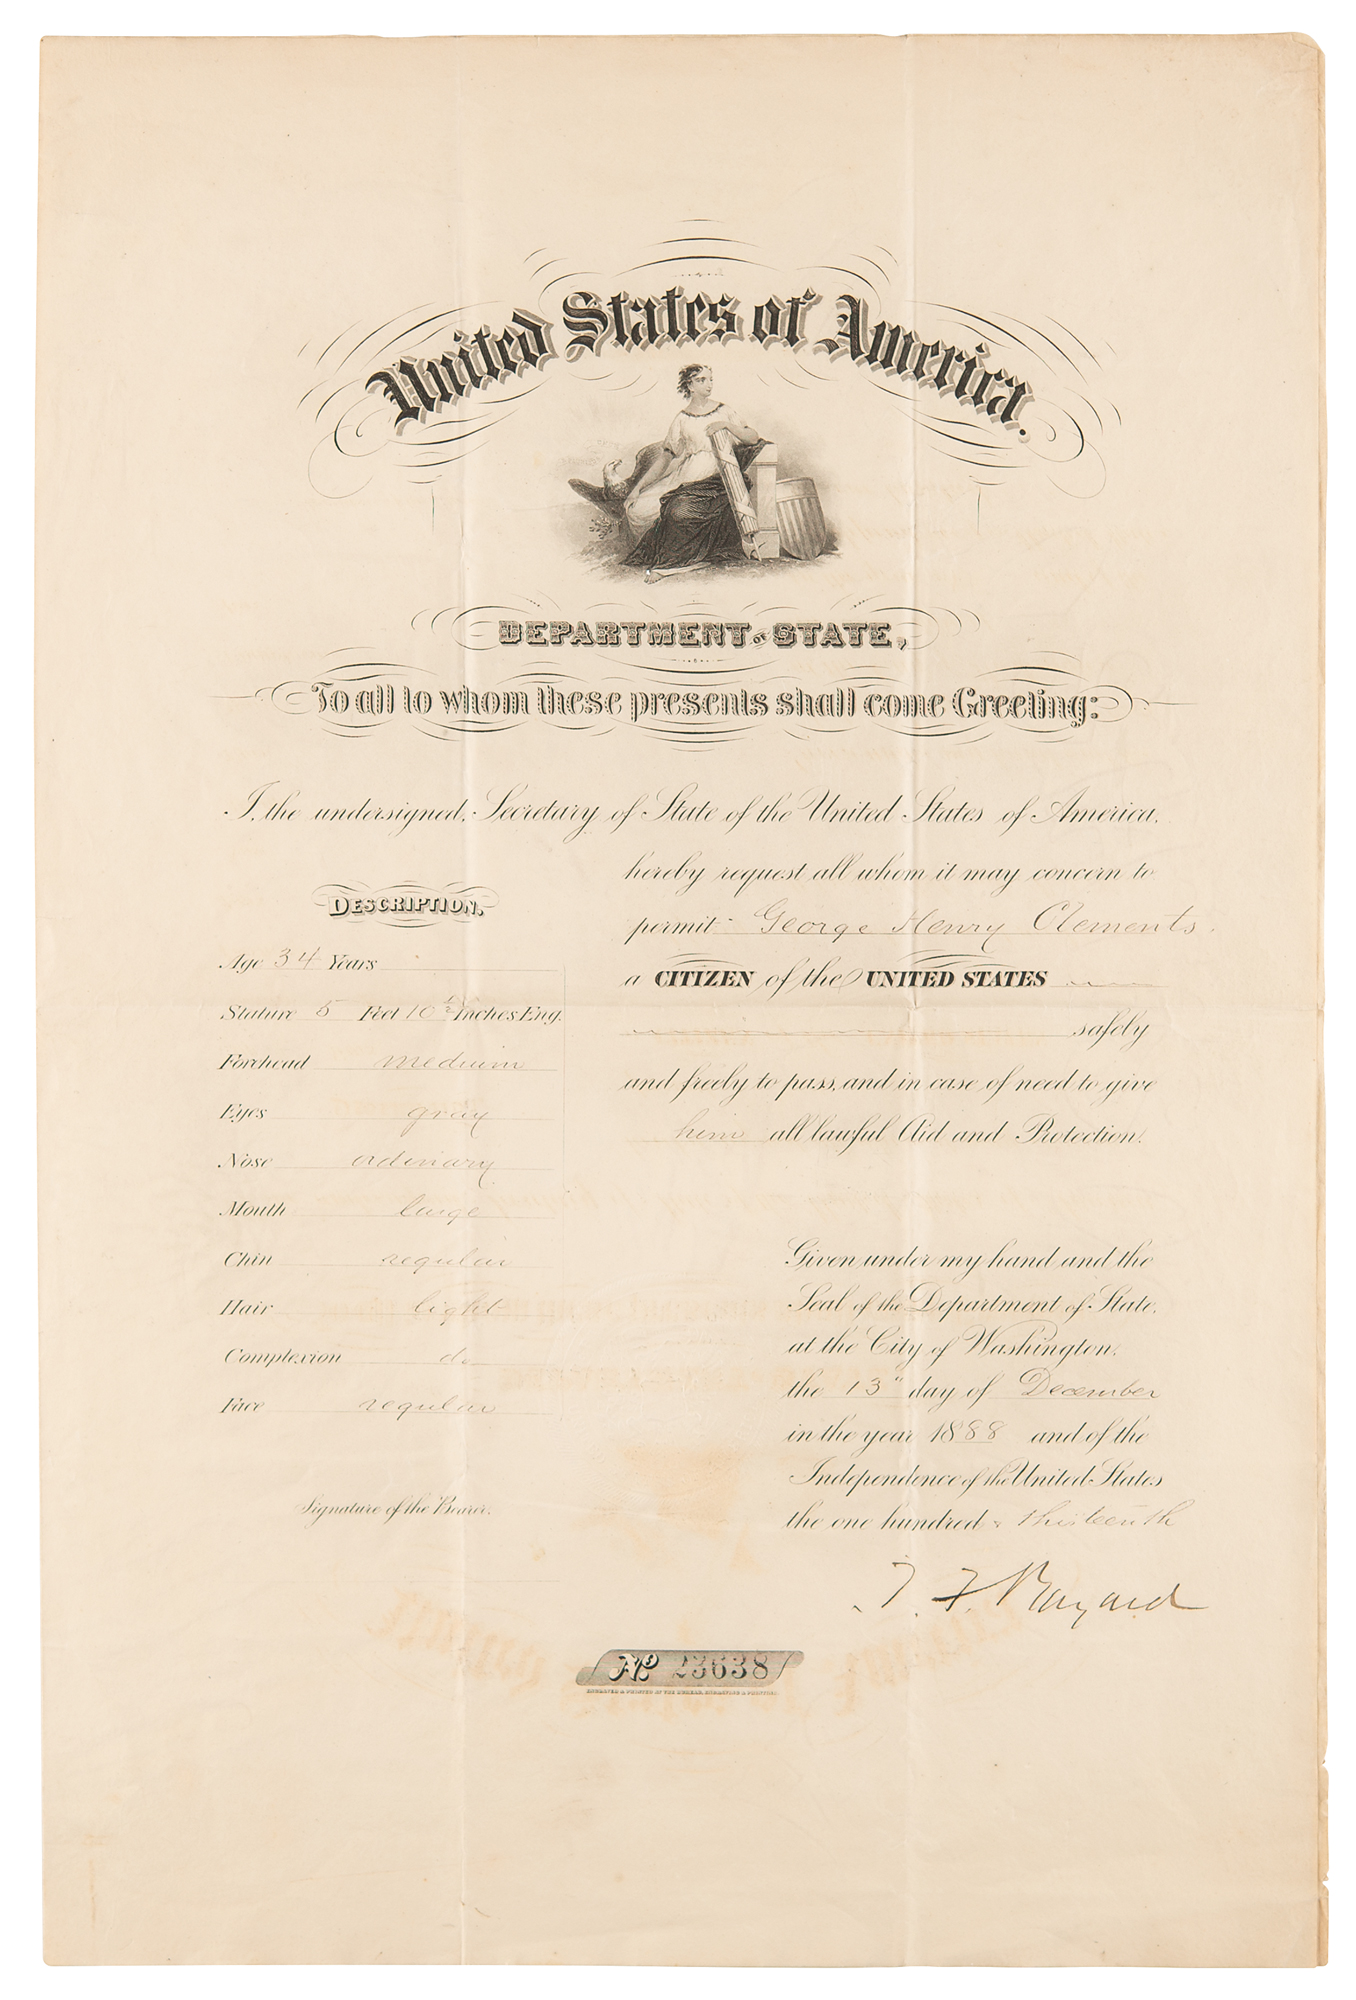 United States of America.
DEPARTMENT OF STATE,
To all to whom these presents shall come Greeting:
I, the undersigned, Secretary of State of the United States of America,
hereby request all whom it may concern to
permit George Henry Clements
a CITIZEN of the UNITED STATES
safely
and freely to pass, and in case of need to give
him all lawful Aid and Protection.
DESCRIPTION.
Age 34 Years
Stature 5 Feet 10 Inches Eng.
Forehead medium
Eyes gray
Nose ordinary
Mouth large
Chin regular
Hair light
Complexion do
Face regular
Signature of the Bearer.
Given under my hand and the
Seal of the Department of State,
at the City of Washington,
the 13" day of December
in the year 1888 and of the
Independence of the United States
the one hundred & thirteenth
T. F. Bayard
No. 23638
ENGRAVED & PRINTED AT THE BUREAU, ENGRAVING & PRINTING.